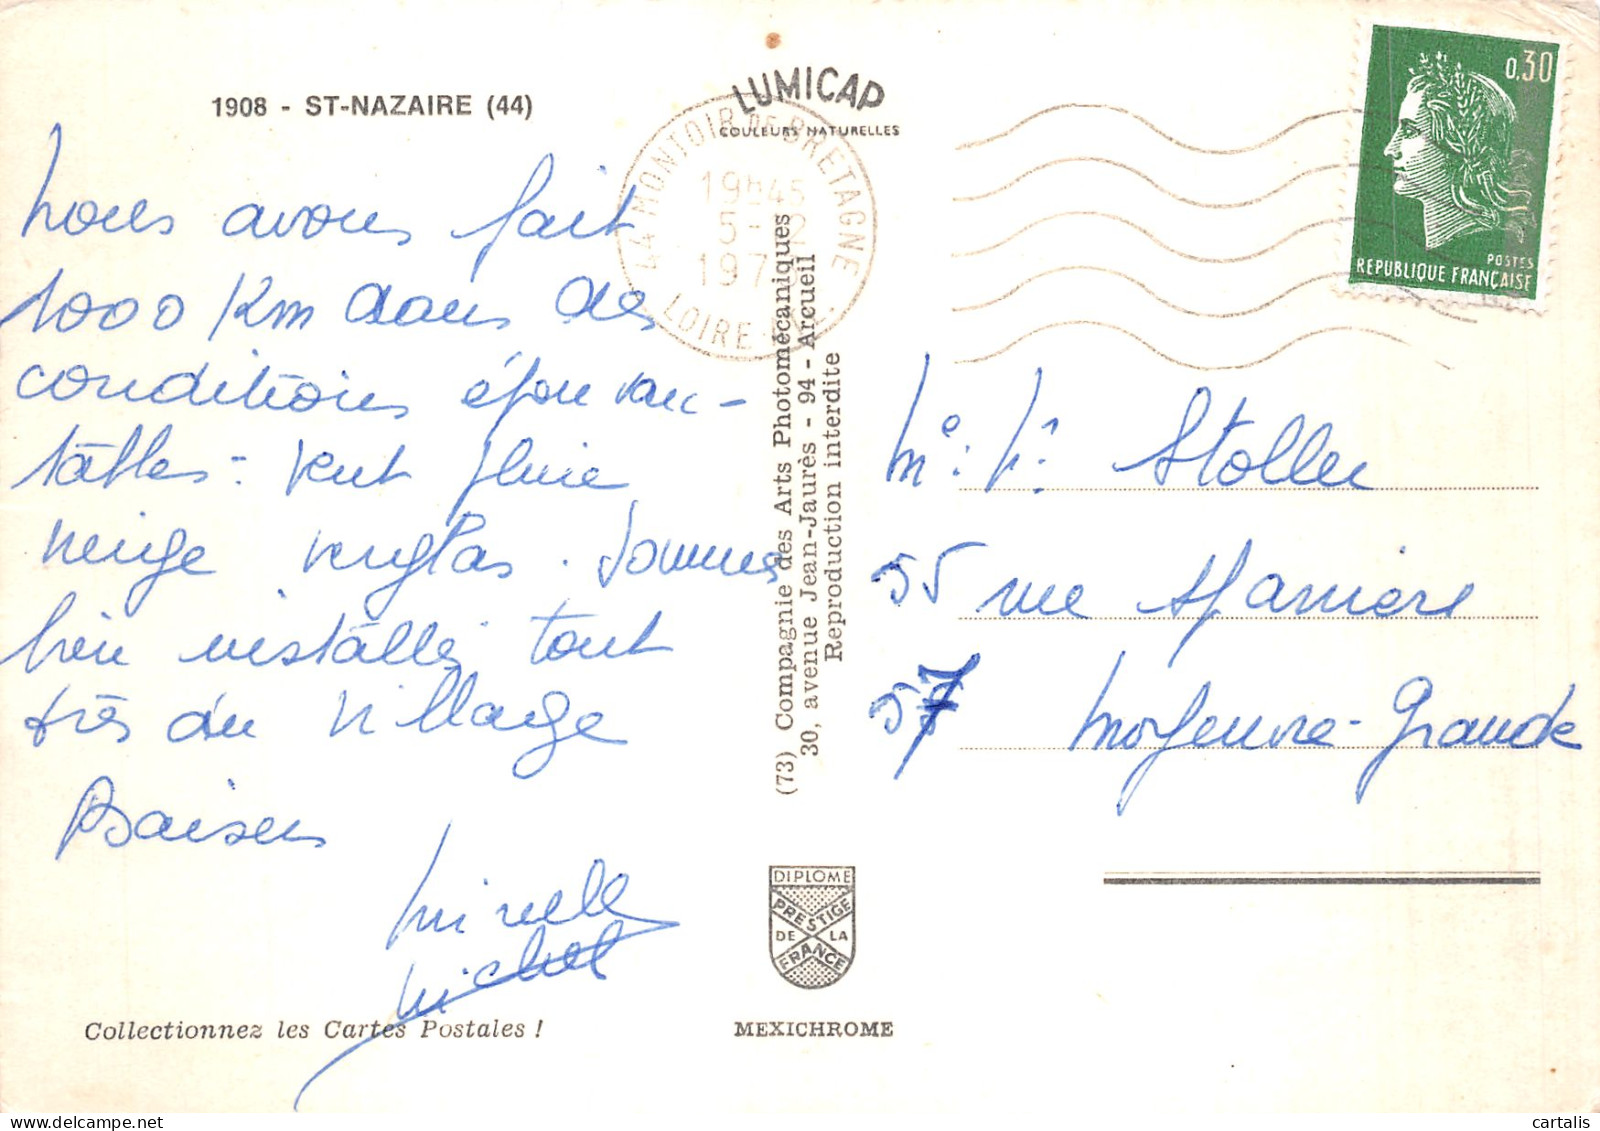 1908 - ST-NAZAIRE (44)
LUMICAP
COULEURS NATURELLES
44 MONTOIR DE BRETAGNE
19h45
5 - 2
197
LOIRE
0,30
POSTES
REPUBLIQUE FRANÇAISE
Nous avons fait
1000 Km dans des
conditions épouvan-
tables - vent pluie
neige verglas. Sommes
bien installés tout
près du village
Baisers
Mireille
Michel
Collectionnez les Cartes Postales !
(73) Compagnie des Arts Photomécaniques
30, avenue Jean-Jaurès - 94 - Arcueil
Reproduction interdite
DIPLOME
PRESTIGE
DE LA
FRANCE
MEXICHROME
Stoller
55 rue
57 Moyeuvre-Grande
cartalis